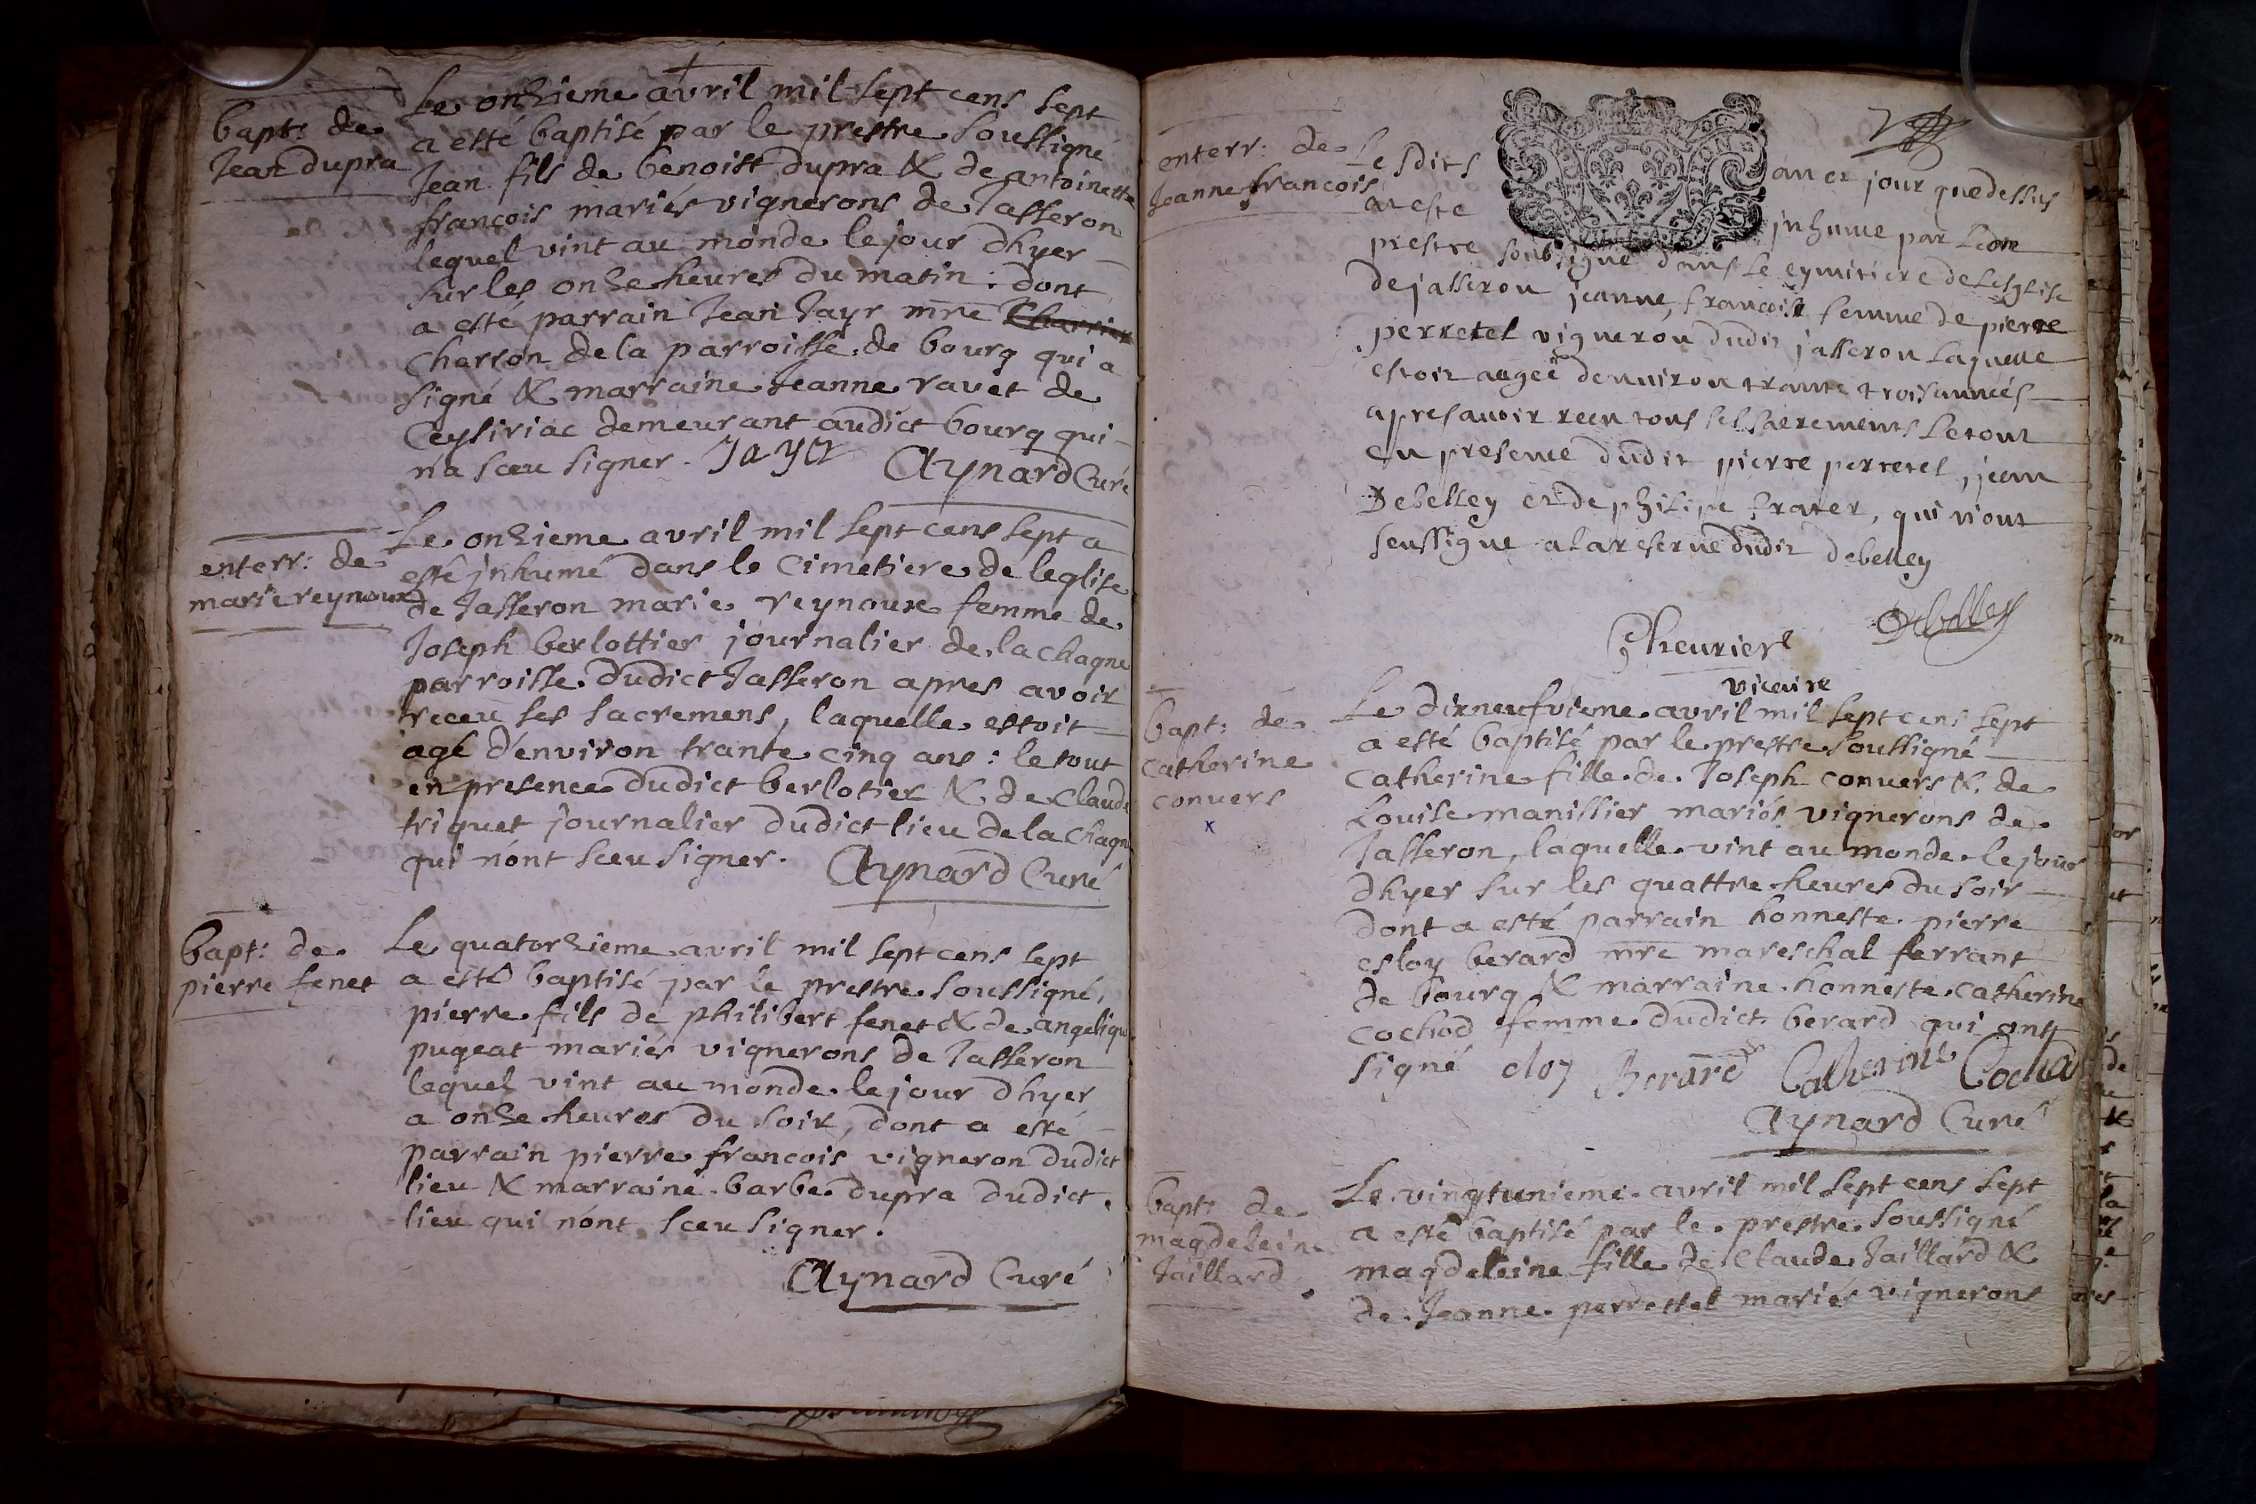 bapt: de
Jean dupra
Le onzieme avril mil sept cens sept
a esté baptisé par le prestre soussigné
Jean fils de benoist dupra & de antoinette
françois mariés vignerons de Jasseron
lequel vint au monde le jour dhyer
sur les onze heures du matin : dont
a esté parrain Jean Jayr mre Charrier
Charron de la parroisse de bourg qui a
signé & marraine Jeanne ravet de
Ceysiriac demeurant audict bourg qui
n'a sceu signer. JaYr Aynard Curé
enterr: de
marie reynoux
Le onzieme avril mil sept cens sept a
esté jnhumé dans le cimetiere de leglise
de Jasseron marie reynoux femme de
Joseph berlottier journalier de la chagne
parroisse dudict Jasseron apres avoir
receu ses sacremens, laquelle estoit
agé d'environ trante cinq ans : le tout
en presence dudict berlotier & de claude
triquet journalier dudict lieu de la chagne
qui n'ont sceu signer. Aynard Curé
bapt: de
pierre fenet
Le quatorzieme avril mil sept cens sept
a esté baptisé par le prestre soussigné,
pierre fils de philibert fenet & de angelique
pugeat mariés vignerons de Jasseron
lequel vint au monde le jour dhyer
a onze heures du soir, dont a esté
parrain pierre francois vigneron dudict
lieu & marraine barbe dupra dudict
lieu qui n'ont sceu signer.
Aynard Curé
enterr: de
Jeanne francois
Lesdits an et jour que dessus
a este jnhume par
prestre soubsigne dans le cymitiere de leglise
de jasseron jeanne francoise femme de pierre
perretel vigneron dudit jasseron laquelle
estoit augee denuiron trante trois annees
apres auoir receu tous ses sacrements le tout
en presence dudit pierre perretel, jean
Debelley et de philipe frater, qui n'ont
soussigne a la reserue dudit debelley
Debelley
Cheurier
vicaire
bapt: de
catherine
convers
x
Le dixneufvieme avril mil sept cens sept
a esté baptisé par le prestre soussigné
catherine fille de Joseph convers & de
Louise manissier mariés vignerons de
Jasseron, laquelle vint au monde le jour
dhyer sur les quattre heures du soir
dont a esté parrain honneste pierre
esloy berard mre mareschal ferrant
de bourg & marraine honneste catherine
cochod femme dudict berard qui ont
signé eloy Berard Catherine Cocha
Aynard Curé
bapt: de
magdeleine
Jaillard
Le vingtunieme avril mil sept cens sept
a esté baptisé par le prestre soussigné
magdeleine fille de Claude Jaillard &
de Jeanne perrettel mariés vignerons